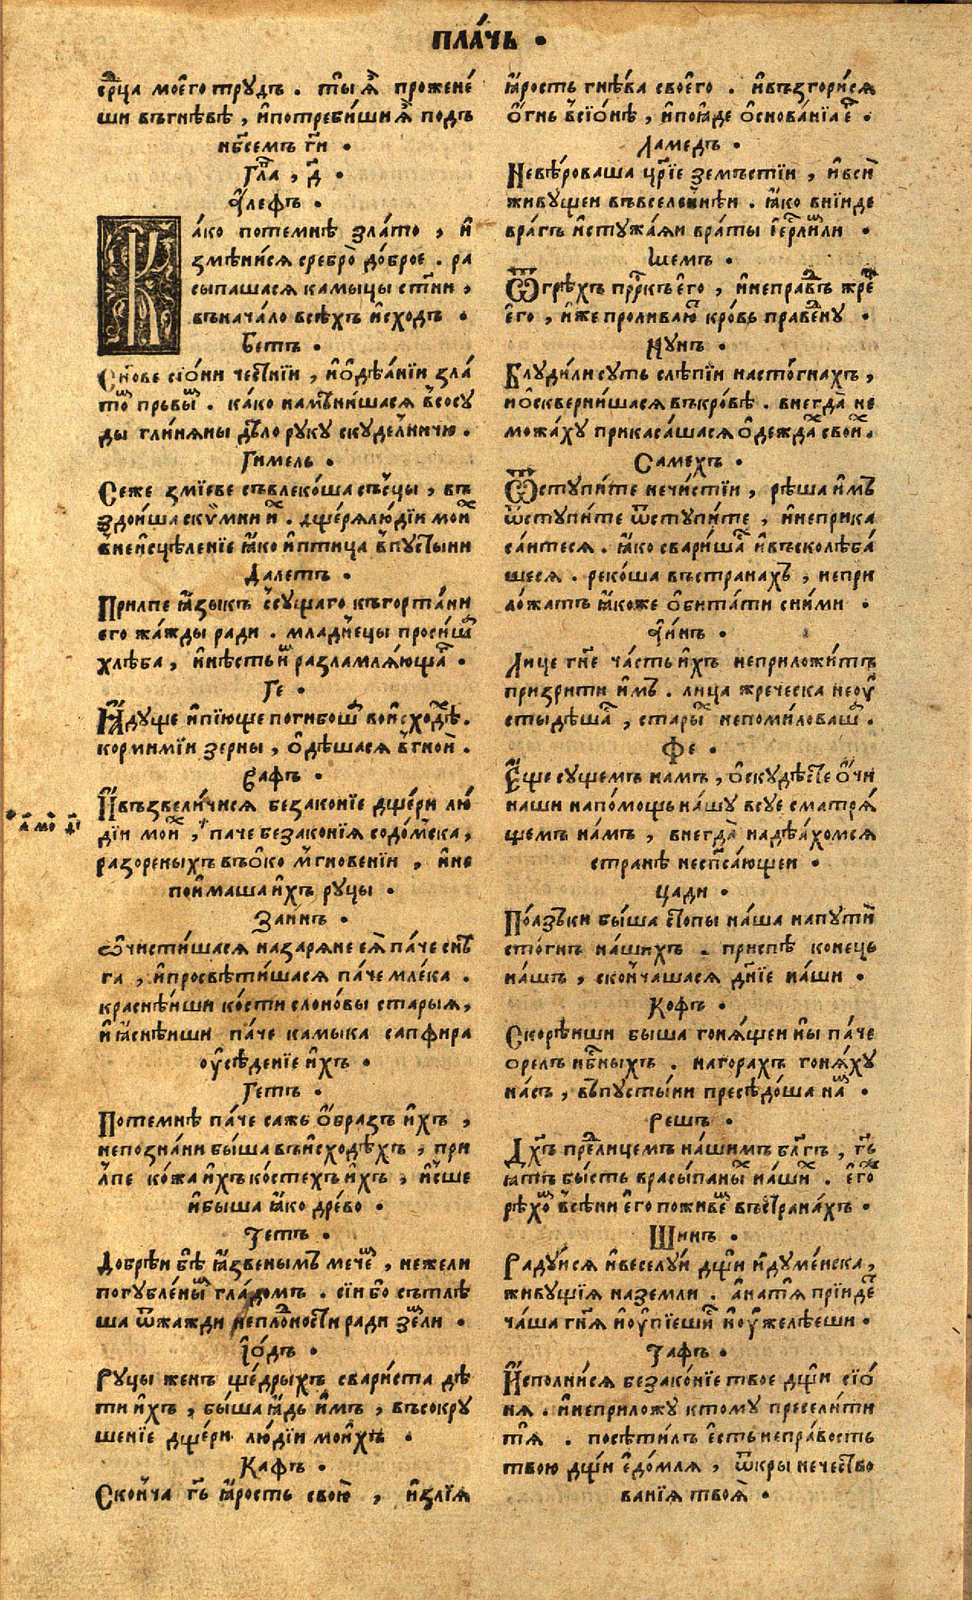 пла́чь •
срⷣца моего трудъ . ты ѧ҆̀ прожене́
ши въгнѣвѣ , и҆потреби́ши ѧ҆̀ подъ
нбⷭ҇емъ гⷭ҇и •
Гла , д҃ •
А҆́лефъ •
Ка́ко потемнѣ зла́то , и҆
змѣни́сѧ сребро̀ до́брое . ра
сыпашасѧ камыцы ст҃ни ,
въначало всѣхъ и҆сходъ •
Бетъ •
Сн҃ове сїо́ни чести́нїи , и҆ѻ҆дѣа́нїи зла
томъ прьвымъ . ка́ко намѣни́шасѧ в̾сосу
ды гли́нѧны дѣ́ло руку скуде́лничю .
Гимель •
Сеже змїеве съвлеко́ша съсцы , въ
здои́ша скѷмни ихъ . дщерѧлюді́и мои́хъ
в̾неи҆сцѣленїе ꙗ҆́ко и҆птица в̾пусты́ни
Далетъ •
Прилпе ꙗ҆зы́къ ссущаго къгорта́ни
его жа́жды ради . младе́нецы проси́ша
хлѣба , и҆нѣсть и҆мъ разламлѧ́ющаго •
Ге •
Ꙗ҆дуще и҆пїюще погибоша во и҆схо́дѣхъ .
корми́мїи зерны , ѻ҆дѣшасѧ в̾гной .
Вафъ •
И҆възвели́чисѧ безаконїе дще́ри лю
дїи мои́хъ , паче безаконїѧ содо́мска ,
разореныхъ въѻ҆ко мгнове́нїи , и҆не
пои҆маша и҆хъ руцы •
Заинъ •
Ѡ҆чисти́шасѧ назарѧне еѧ҆̀ па́че снѣ
га , и҆просвѣти́шасѧ па́че млека .
краснѣ́иши ко́сти слоно́вы старыѧ ,
и҆ ꙗ҆снѣ́иши па́че камыка сапфира
оу҆сѣденїе и҆хъ •
Гетъ •
Потемнѣ паче сажь ѻ҆́бразъ и҆хъ ,
непозна́ни бы́ша въи҆схо́дѣхъ , при
лпе ко́жа и҆хъ ко́стехъ и҆хъ , и҆́сше
и҆быша ꙗ҆́ко дре́во •
Тетъ •
Добрѣи бѣ̀ ꙗ҆́звенымъ мече́мъ , нежели
погубле́нымъ гла́домъ . сїи бо сътлѣ
ша ѿжажди неплодности ради земли •
І҆ѻ҆дъ •
Руцы женъ ще́дрыхъ свари́ста дѣ
ти и҆́хъ , бы́ша ꙗ҆дь и҆́мъ , въсокру
шенїе дще́ри лю́дїи мои́хъ •
Кафъ •
Сконча гⷭ҇ь ꙗ҆́рость свою̀ , и҆злїѧ
• а҃ мо҃ д҃і
ꙗ҆́рость гнѣ́ва своего̀ . и҆възгори́сѧ
ѻ҆́гнь в̾сїо́нѣ , и҆поꙗ҆́де ѻ҆снова́нїа егⷪ҇ •
Ламедъ •
Невѣ́роваша црⷭ҇їе земъстїи , и҆всѝ
живущеи въвселе́ннѣи . ꙗ҆́ко вни́иде
вра́гъ и҆стужа́ѧи врата і҆ерⷭ҇лимли •
Шемъ •
Ѿгрѣ́хъ прⷪ҇ркъ его̀ , и҆неправдъ жрецъ
его̀ , и҆же пролива́ю кро́вь праведну •
Нунъ •
Блуди́ли суть слѣпїи насто́гнахъ ,
и҆ѻ҆сквернишасѧ въкро́вѣ . внегда̀ не
можа́ху прикаса́шасѧ ѻ҆де́ждахъ свои́хъ .
Самехъ •
Ѿступи́те нечи́стїи , рѣша и҆мъ
ѿступи́те ѿступи́те , и҆неприка
са́итесѧ . ꙗ҆́ко свари́шасѧ и҆въсколѣба́
шесѧ . реко́ша въстранахъ , непри
ло́жатъ ꙗ҆коже ѻ҆бита́ти сни́ми •
А҆́инъ •
Лице гнⷭ҇е ча́сть и҆хъ неприложи́тъ
призрити и҆мъ . лица жре́ческа неоу҆
стыдѣшасѧ , старыхъ непоми́ловаша .
Фе •
Е҆ще сущемъ намъ , ѻ҆скудѣ́сте ѻ҆́чи
наши напо́мощь на́шу всуе сматрѧ́
щемъ на́мъ , внегда̀ надѣ́ахомсѧ
стра́нѣ неспса́ющеи •
Цади •
Поа́зъки бы́ша стопы на́ша напути
сто́гнъ на́шихъ . приспѣ коне́ць
на́шъ , сконча́шасѧ дн҃їе на́ши •
Кофъ •
Скорѣ́иши быша гонѧ́щеи ны па́че
орелъ нбⷭ҇ныхъ . нагорахъ гонѧ́ху
на́съ , въпусты́ни пресѣдо́ша намъ •
Решъ •
Дх҃ъ предлице́мъ на́шимъ бл҃гъ , гⷭ҇ь
ꙗ҆тъ бы́сть врасыпаныхъ на́шихъ . его́же
рѣхомъ в̾сѣни его поживемъ въстрана́хъ •
Шинъ •
Радуи́сѧ и҆весели́ дщи и҆ду́менска ,
живущїѧ наземли . а҆натѧ̀ прїи́детъ
ча́ша гнⷭ҇ѧ и҆оу҆пїешисѧ и҆оу҆желѣеши •
Тафъ •
И҆сполни́сѧ безако́нїе твое дщи сїо́
нѧ . и҆неприложу ктому пресели́ти
тѧ̀ . посѣти́лъ е҆сть непра́вость
твою дщи е҆до́млѧ , ѿкры нечество
ванїѧ твоѧ̀ •